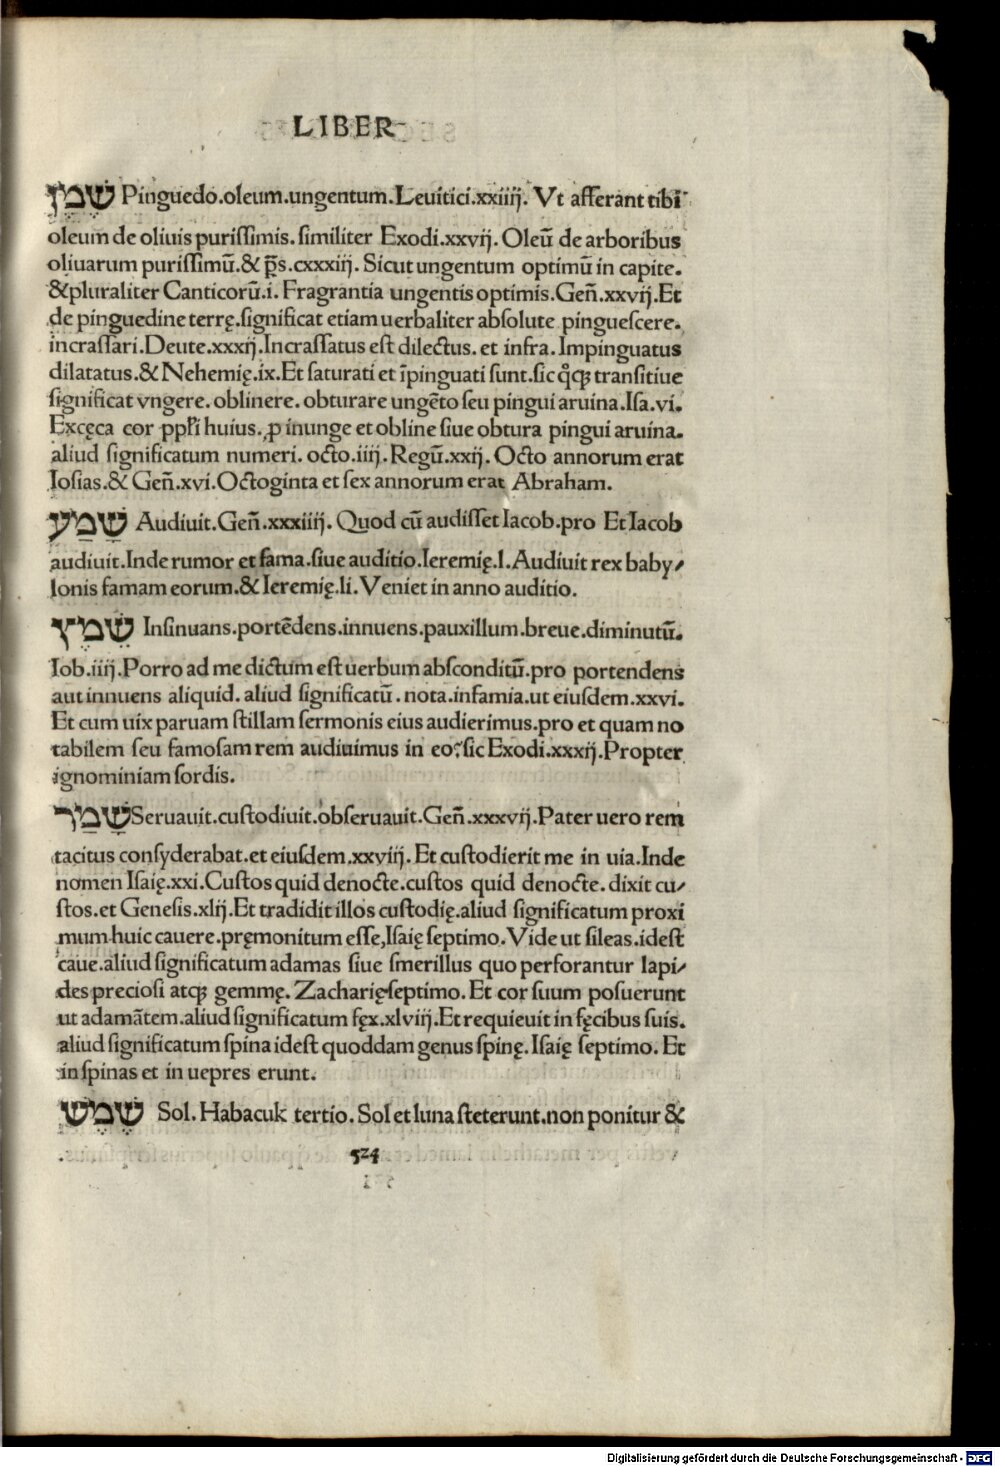 LIBER
שֶׁמֶן Pinguedo.oleum.ungentum.Leuitici.xxiiij. Vt afferant tibi
oleum de oliuis purissimis. similiter Exodi.xxvij. Oleū de arboribus
oliuarum purissimū.& p̄s.cxxxiij. Sicut ungentum optimū in capite.
&pluraliter Canticorū.i. Fragrantia ungentis optimis.Geñ.xxvij.Et
de pinguedine terrę.significat etiam uerbaliter absolute pinguescere.
incrassari.Deute.xxxij.Incrassatus est dilectus. et infra. Impinguatus
dilatatus.& Nehemię.ix.Et saturati et īpinguati sunt.sic transitiue
significat vngere. oblinere. obturare ungēto seu pingui aruina.Isa.vi.
Excęca cor ppĺi huius.,p inunge et obline siue obtura pingui aruina.
aliud significatum numeri. octo.iiij. Regū.xxij. Octo annorum erat
Iosias.& Geñ.xvi.Octoginta et sex annorum erat Abraham.
שָׁמַע Audiuit.Geñ.xxxiiij. Quod cū audisset Iacob.pro Et Iacob
audiuit.Inde rumor et fama.siue auditio.Ieremię.l.Audiuit rex baby⸗
lonis famam eorum.& Ieremię.li.Veniet in anno auditio.
שֶׁמֶץ Insinuans.portēdens.innuens.pauxillum.breue.diminutū.
Iob.iiij.Porro ad me dictum est uerbum absconditū.pro portendens
aut innuens aliquid. aliud significatū. nota.infamia.ut eiusdem.xxvi.
Et cum uix paruam stillam sermonis eius audierimus.pro et quam no
tabilem seu famosam rem audiuimus in eo?sic Exodi.xxxij.Propter
ignominiam sordis.
שָׁמַר Seruauit.custodiuit.obseruauit.Geñ.xxxvij.Pater uero rem
tacitus consyderabat.et eiusdem.xxviij. Et custodierit me in uia.Inde
nomen Isaię.xxi.Custos quid denocte.custos quid denocte. dixit cu⸗
stos.et Genesis.xlij.Et tradidit illos custodię.aliud significatum proxi
mum huic cauere.pręmonitum esse,Isaię septimo. Vide ut sileas.idest
caue.aliud significatum adamas siue smerillus quo perforantur lapi⸗
des preciosi atqꝫ gemmę. Zacharię septimo. Et cor suum posuerunt
ut adamātem.aliud significatum fęx.xlviij.Et requieuit in fęcibus suis.
aliud significatum spina idest quoddam genus spinę. Isaię septimo. Et
in spinas et in uepres erunt.
שֶׁמֶשׁ Sol. Habacuk tertio. Sol et luna steterunt.non ponitur &
524
Digitalisierung gefördert durch die Deutsche Forschungsgemeinschaft - DFG